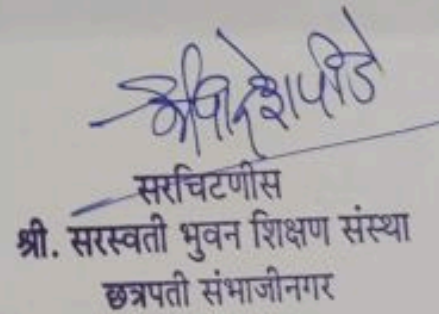 सरचिटणीस
श्री. सरस्वती भुवन शिक्षण संस्था
छत्रपती संभाजीनगर